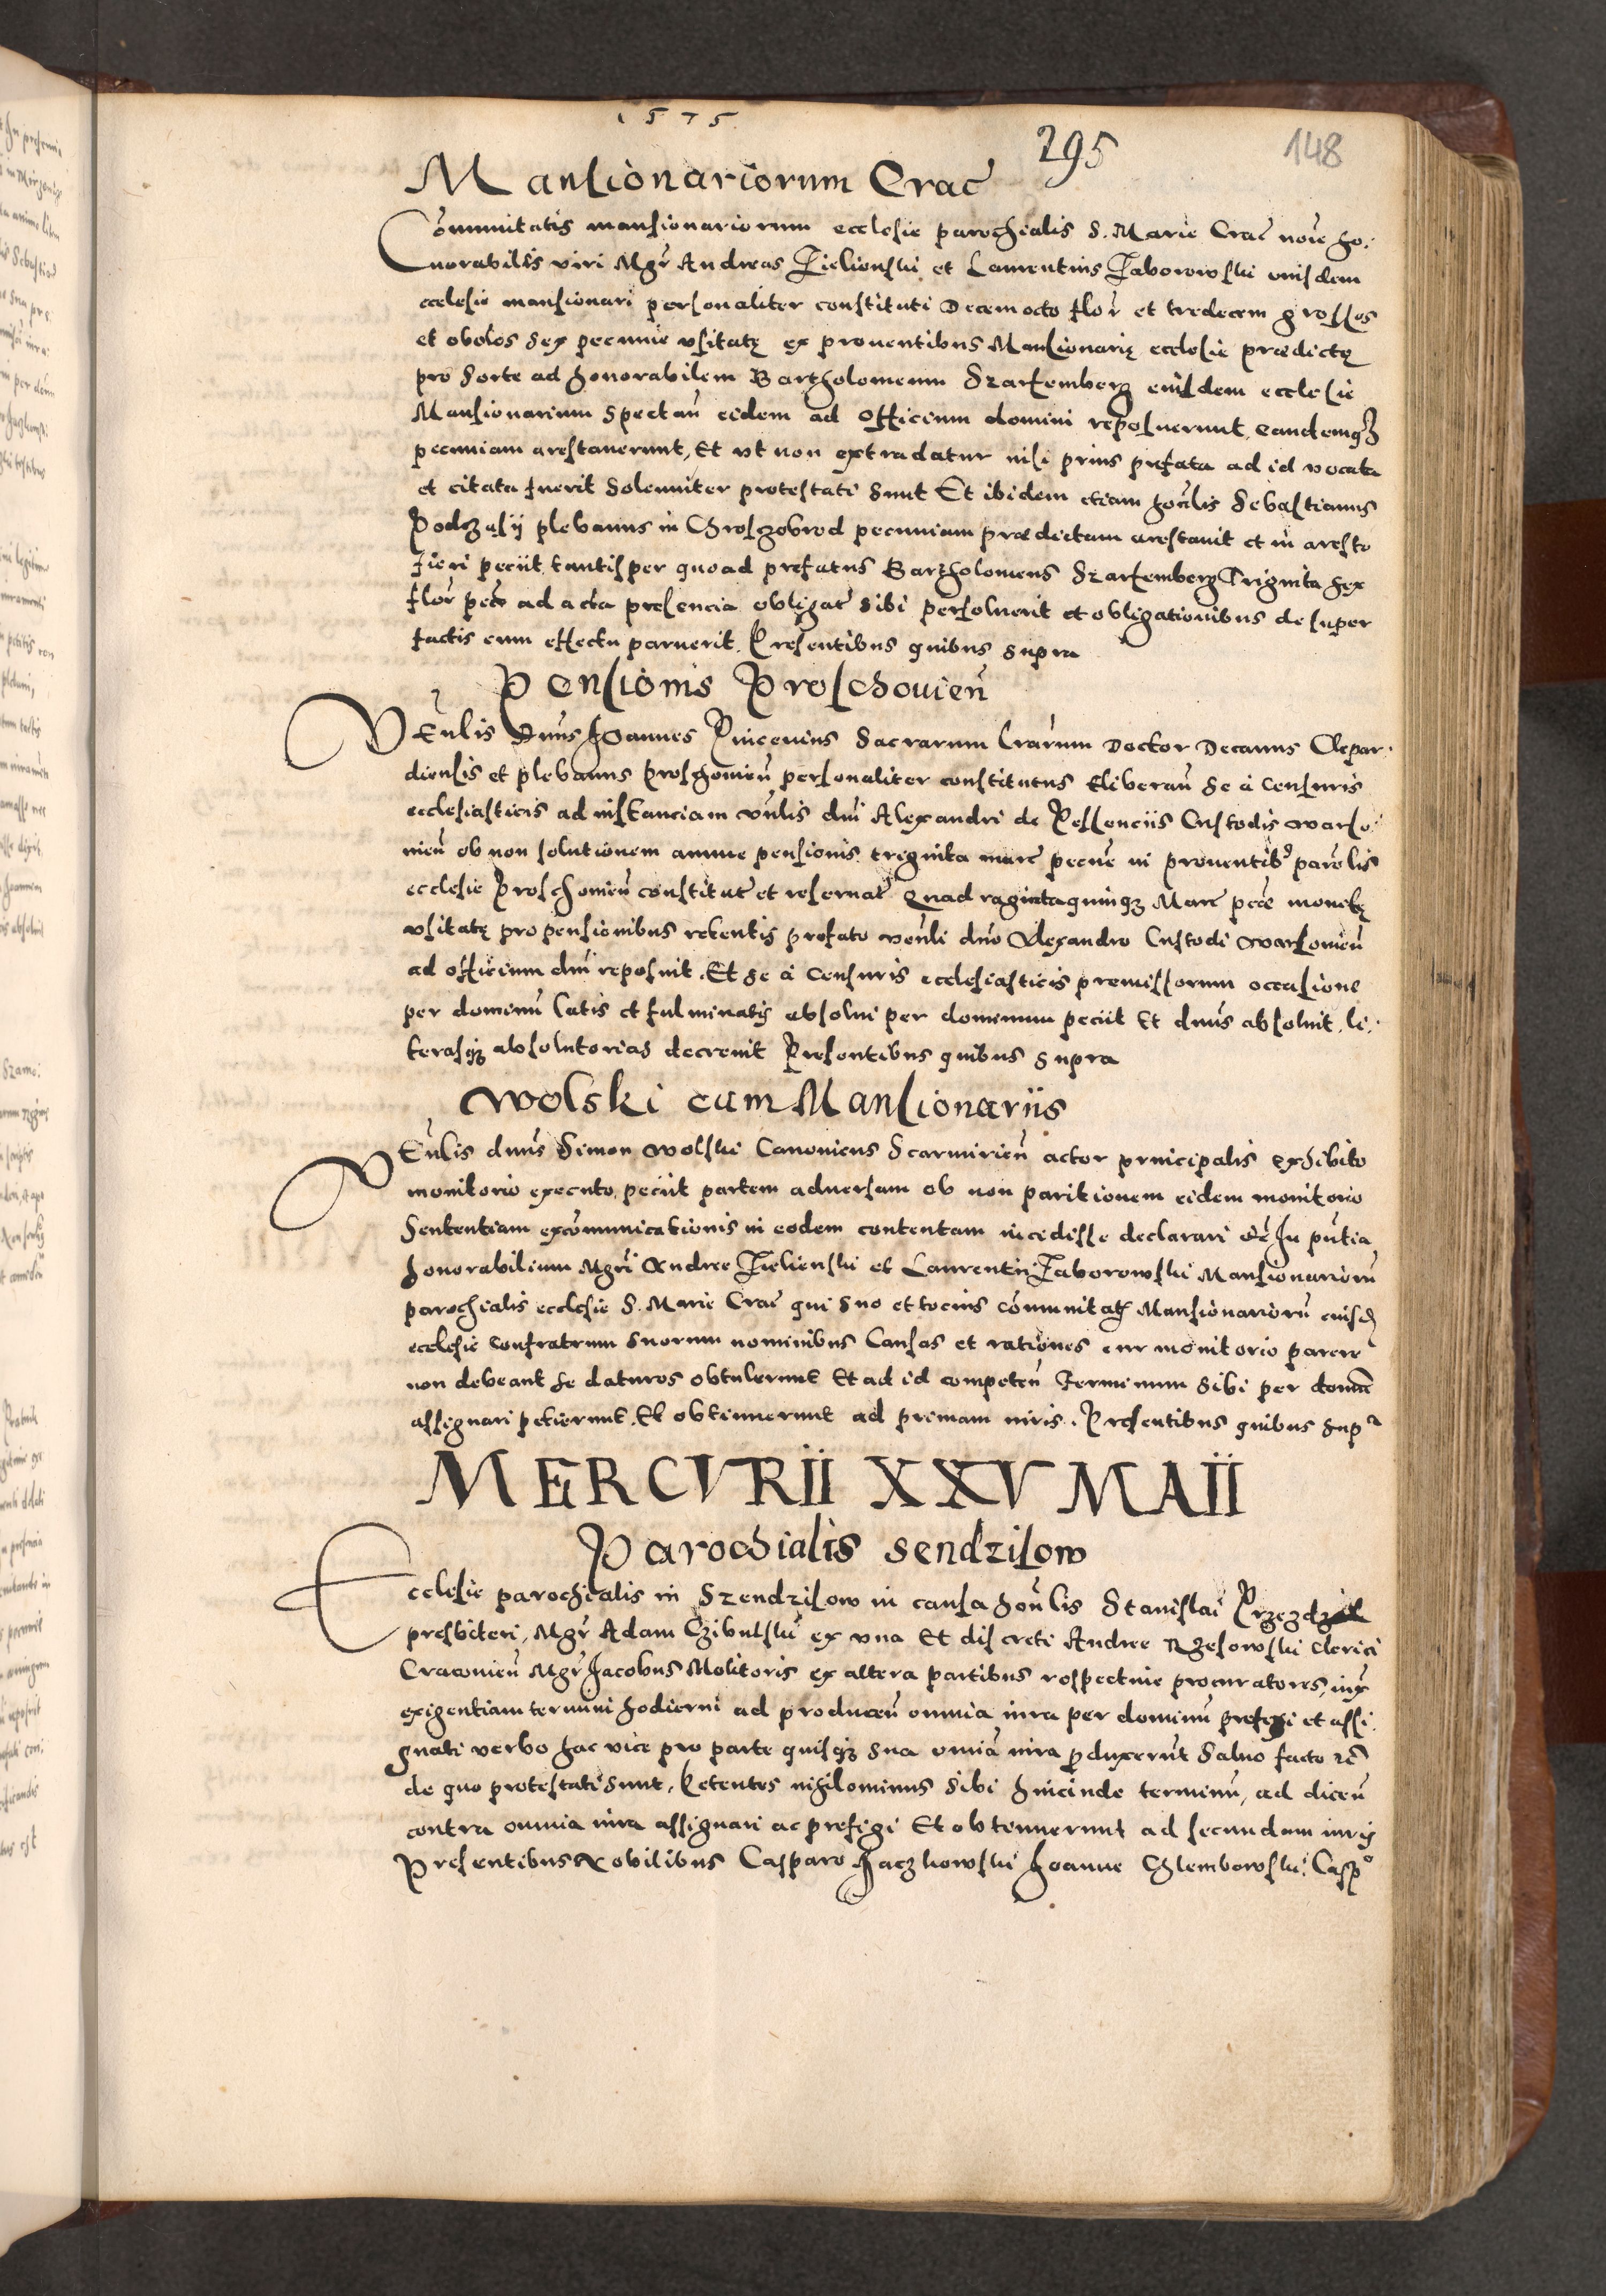 1575
295
148
Mansionariorum Crac̃
Cõmunitatis mansionariorum ecclesie parochialis S. Marie Crac̃ noĩe ho-
norabilis viri Mgr̃ Andreas Zielionski et Laurentius Zaborowski eiusdem
ecclesie mansionari personaliter constituti Decem octo flor̃ et tredecem grossos
et obolos sex pecunie usitatę ex proventibus Mansionarię ecclesie prædictę
pro sorte ad honorabilem Bartholomeum Szarfemberg eiusdem ecclesie
Mansionarium spectan̄ eidem ad officium domini reposuerunt, eandemqȝ
pecuniam arestaverunt, Et ut non extradatur nisi prius prefata ad id vocata
et citata fuerit solenniter protestati sunt Et ibidem etiam hon̄lis Sebastianus
plebanus in Chroschobrod pecuniam prædictam arestavit et in aresto
fieri peciit tantisper quoad prefatus Bartholomeus Szarfemberg Triginta sex
flor̃ pec̃ ad acta presencia obligat̃ sibi persolverit et obligationibus desuper
factis cum effectu paruerit. Presentibus quibus supra
Pensionis Proschovien̄
Ven̄lis Dn̄us Joannes Pinczevius Sacrarum Lr̃arum Doctor Decanus Clepar-
diensis et plebanus Proschovien̄ personaliter constitutus et liberan̄ se à censuris
ecclesiasticis ad instanciam vn̄lis dn̄i Alexandri de Pessenciis Custodis Warso-
vien̄ ob non solutionem annue pensionis triginta marc̃ pecun̄e in proventib9 paro͂lis
ecclesie Proschovien̄ constitut̃ et reservat̃ Quadragintaquinqȝ Marc̃ pec̃e monetę
usitatę pro pensionibus retentis prefato ven̄li dn̄o Alexandro Custodi Warsovien̄
ad officium dn̄i reposuit. Et se à censuris ecclesiasticis premissorum occasione
per dominū latis et fulminatis absolvi per dominum peciit Et dn̄us absolvit, li-
terasqȝ absolutorias decrevit Presentibus quibus supra
Wolski cum Mansionariis
Ven̄lis dn̄us Simon Wolski Canonicus Scarmirien̄ actor principalis exhibito
monitorio executo, peciit partem adversam ob non paritionem eidem monitorio
Sententiam excõmunicationis in eodem contentam incidisse declarari In pn̄tia
honorabilium Mgr̃i Andree Zielienski et Laurentii Zaborowski Mansionariorū
parochialis ecclesie S. Marie Crac̃ qui suo et tocius cõmunitat̃ Mansionariorū eiusd̃
ecclesie confratrum suorum nominibus Causas et rationes cur monitorio parere
non debeant se daturos obtulerunt Et ad id competen̄ Terminum sibi per domin̄
assignari petierunt. Et obtinuerunt ad primam iuris. Presentibus quibus supᵃ
MERCVRII XXV MAII
Parochialis Sendzisow
Ecclesie parochialis in Szendzisow in causa hon̄lis Stanislai
presbiteri, Mgr̃ Adam Czibulski ex una Et discreti Andree Rzesowski clerici
Cracovien̄ Mgr̃ Jacobus Molitoris ex altera partibus respective procuratores, iux̃
exigentiam termini hodierni ad producen̄ omnia iura per dominū prefixi et assi-
gnati verbo hac vice pro parte quisqȝ sua omnia iura produxerūt salvo facto
de quo protestati sunt, Petentes nihilominus sibi hincinde terminū, ad dicen̄
contra omnia iura assignari ac prefigi Et obtinuerunt ad secundam iuris
Presentibus Nobilibus Casparo Jaczkowski Joanne Chlembowski, Caspᵒ